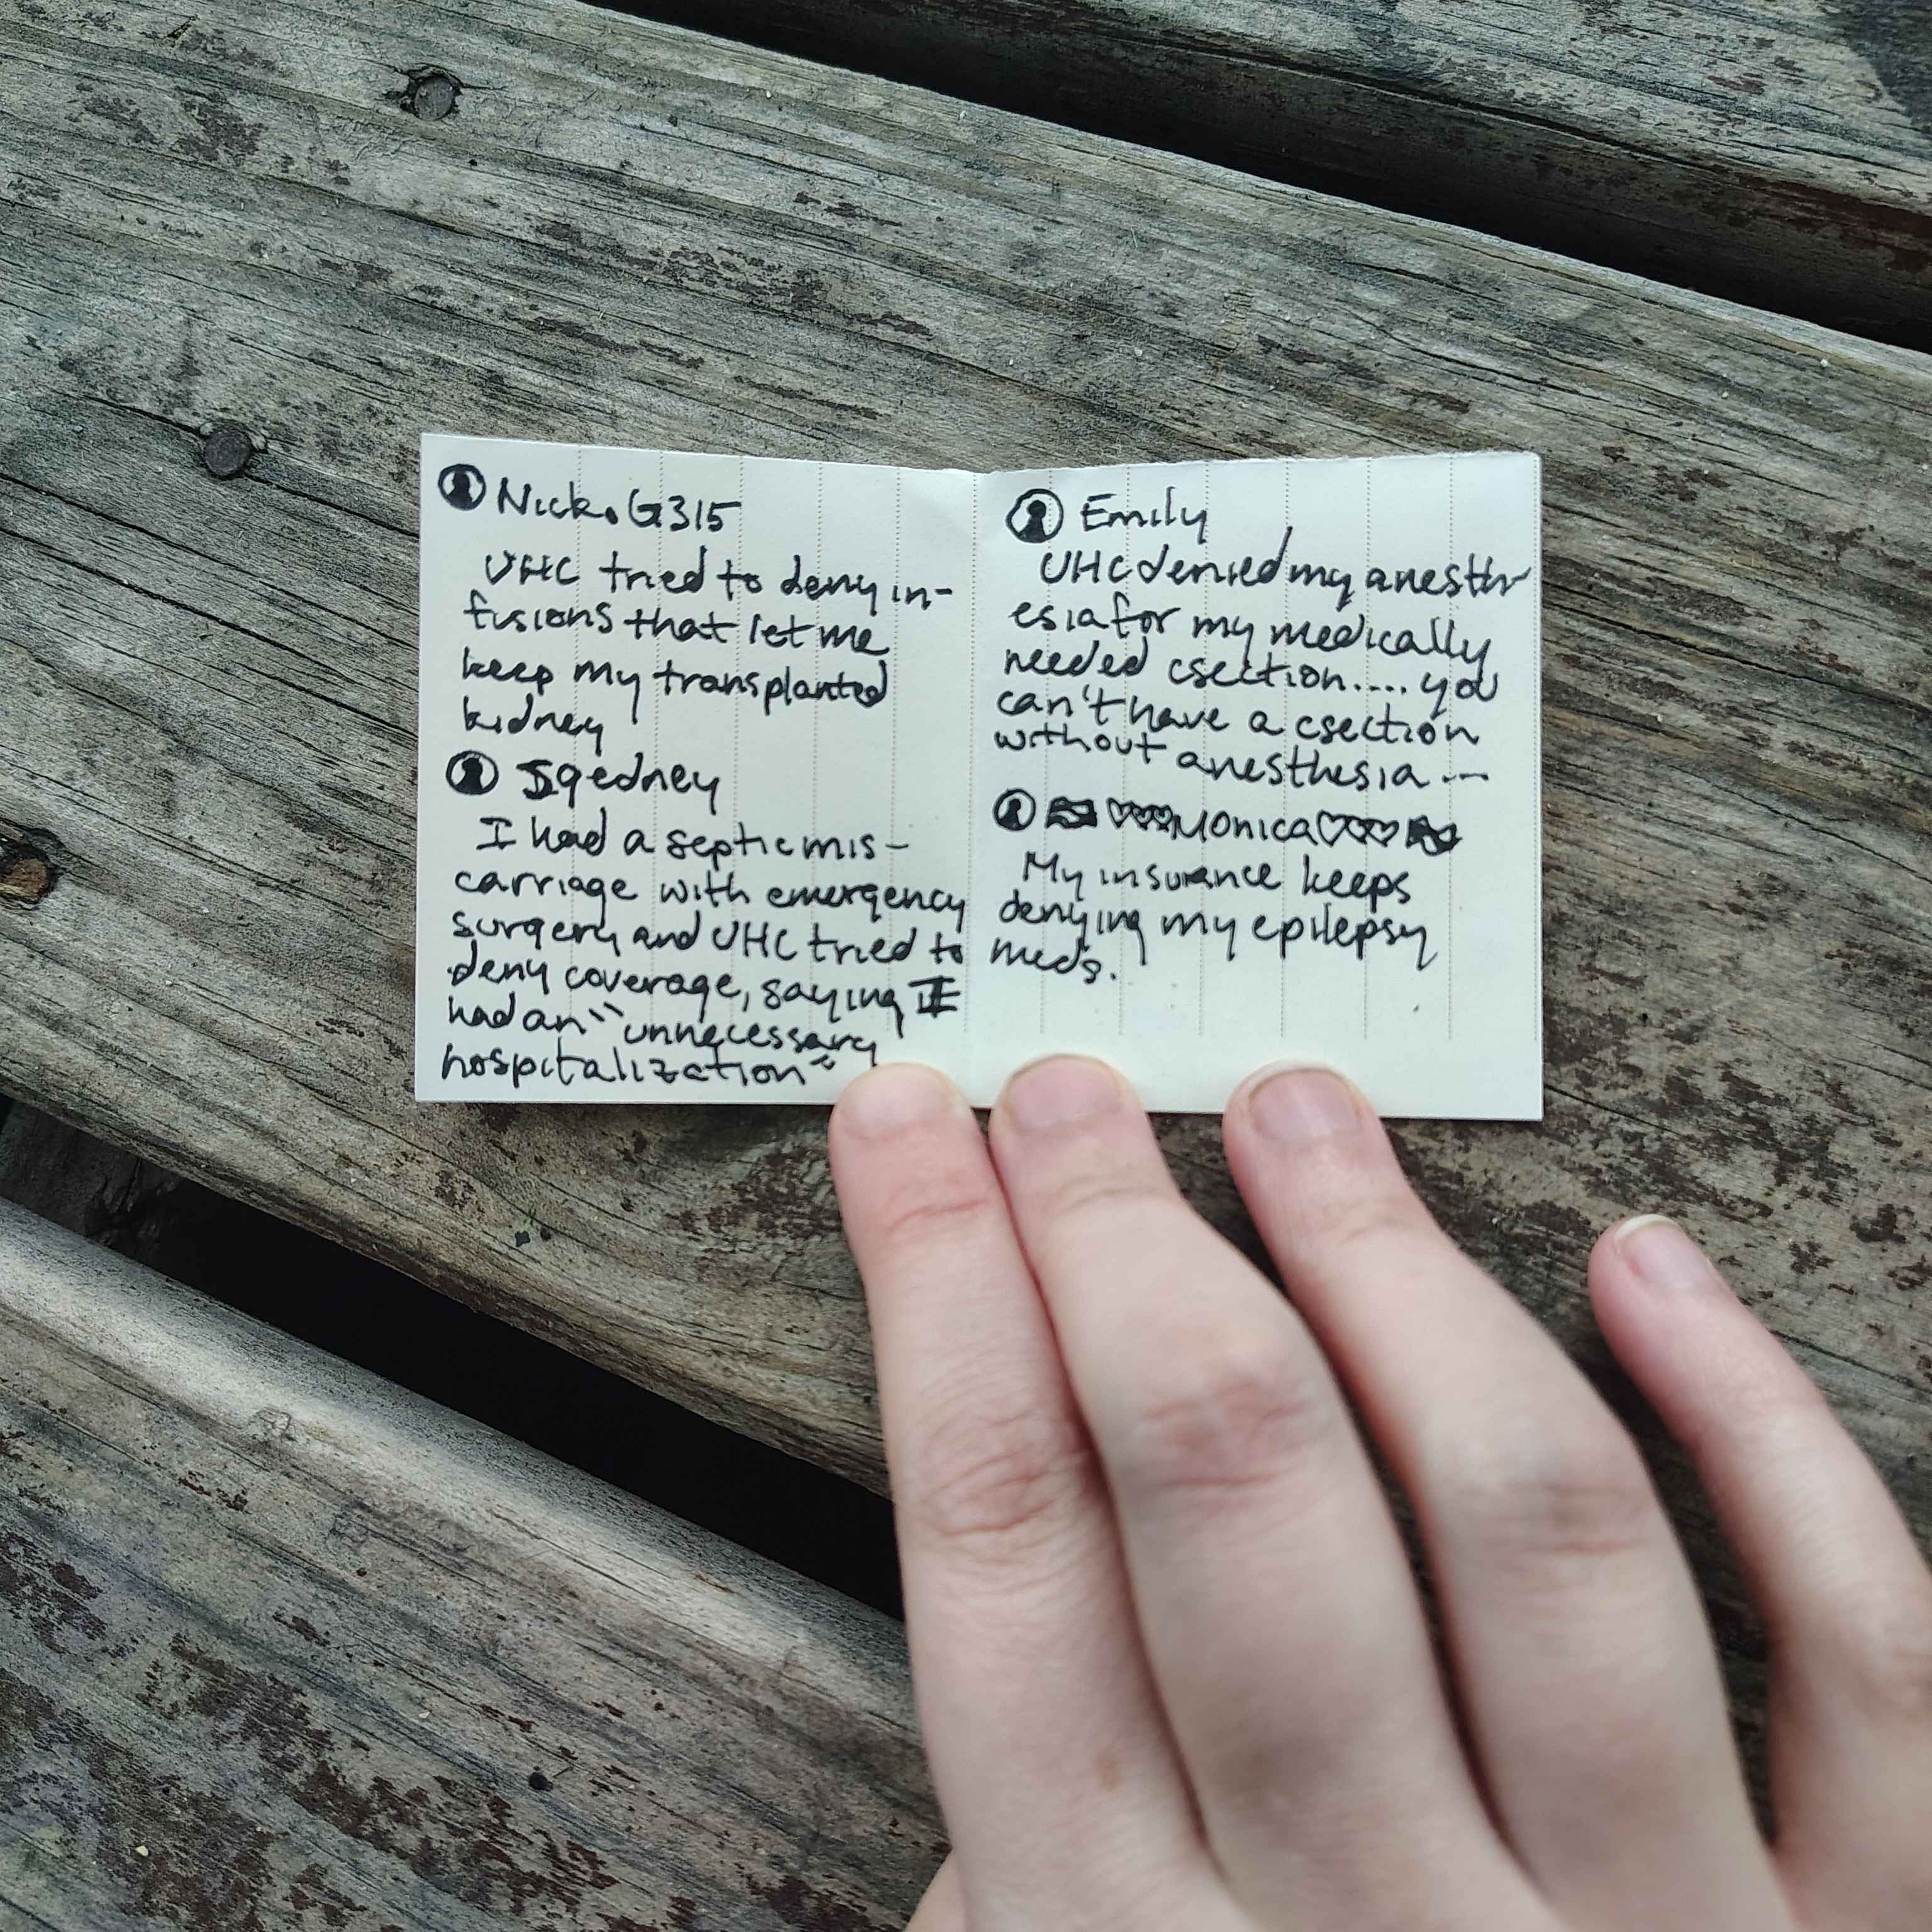 Nick.G315
UHC tried to deny in-
fusions that let me
keep my transplanted
kidney
Sgedney
I had a septic mis-
carriage with emergency
surgery and UHC tried to
deny coverage, saying I
had an "unnecessary
hospitalization"
Emily
UHC denied my anesth-
esia for my medically
needed csection.... you
can't have a csection
without anesthesia ...
♡♡♡Monica♡♡♡
My insurance keeps
denying my epilepsy
meds.